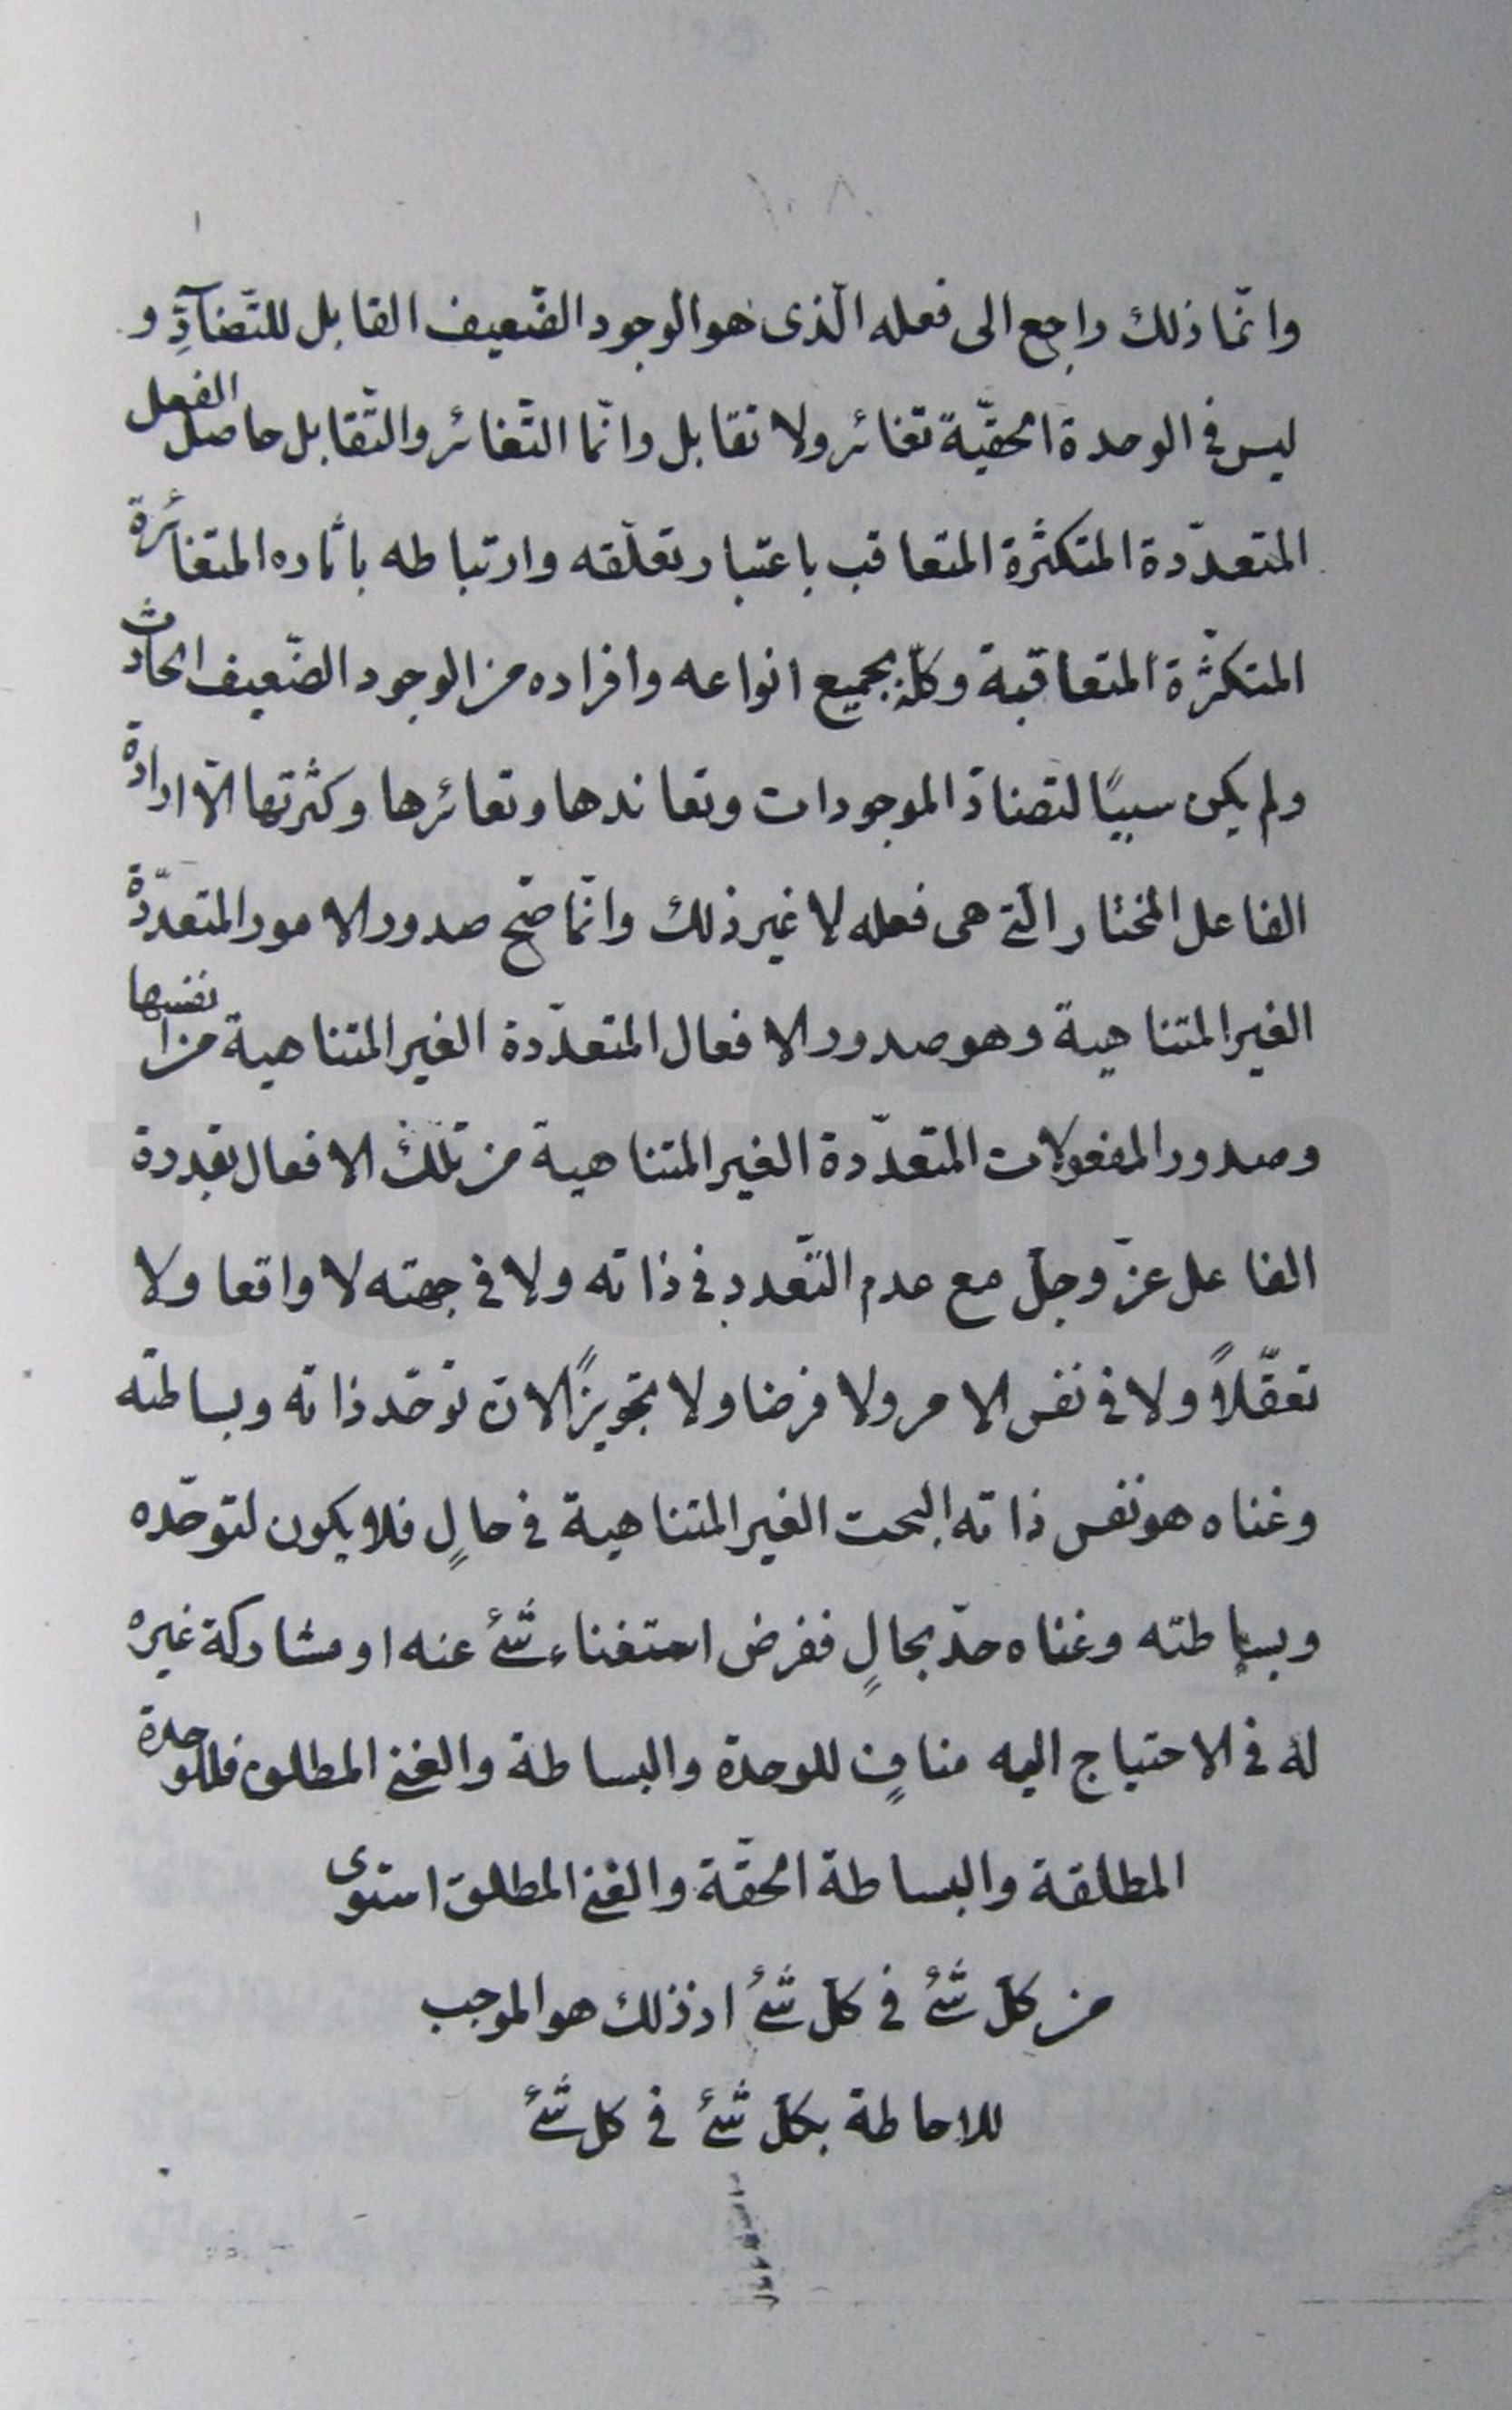 ١٠٨
وانّما ذلك راجع الى فعله الّذى هو الوجود الضّعيف القابل للتّضآدِّ و
ليس فى الوحدة الحقيّة تغائر ولا تقابل وانّما التّغائر والتّقابل حاصل الفعل
المتعدّدة المتكثّرة المتعاقب باعتبار تعلّقه وارتباطه باثاره المتغائرة
المتكثّرة المتعاقبة وكلّه بجميع انواعه وافراده من الوجود الضّعيف الحادث
ولم يكن سببًا لتضادّ الموجودات وتعاندها وتغائرها وكثرتها الّا ارادة
الفاعل المختار الّتى هى فعله لا غير ذلك وانّما صّح صدور الامور المتعدّدة
الغير المتناهية وهو صدور الافعال المتعدّدة الغير المتناهية من انفسها
وصدور المفعولات المتعدّدة الغير المتناهية من تلك الافعال بقدرة
الفاعل عزّ وجلّ مع عدم التّعدد فى ذاته ولا فى جهته لا واقعا ولا
تعقّلاً ولا فى نفس الامر ولا فرضا ولا تجويزًا لانّ توحّد ذاته وبساطته
وغناه هو نفس ذاته البحت الغير المتناهية فى حالٍ فلا يكون لتوحّده
وبساطته وغناه حدّ بحالٍ ففرض استغناء شئ عنه او مشاركة غيره
له فى الاحتياج اليه منافٍ للوحدة والبساطة والغنى المطلق فللوحدة
المطلقة والبساطة الحقّة والغنى المطلق استوى
من كلّ شئ فى كلّ شئ اذ ذلك هو الموجب
للاحاطة بكلّ شئ فى كل شئ